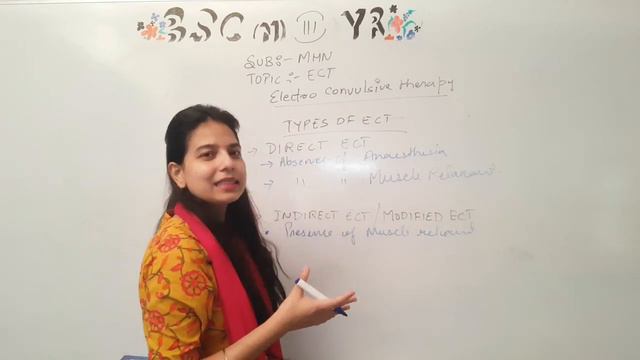 BSC (N) III YR
SUB:- MHN
TOPIC:- ECT
Electro Convulsive therapy
TYPES OF ECT
→ DIRECT ECT
→ Absence of Anaesthesia
→ " " Muscle relaxant
INDIRECT ECT/MODIFIED ECT
• Presence of Muscle relaxant